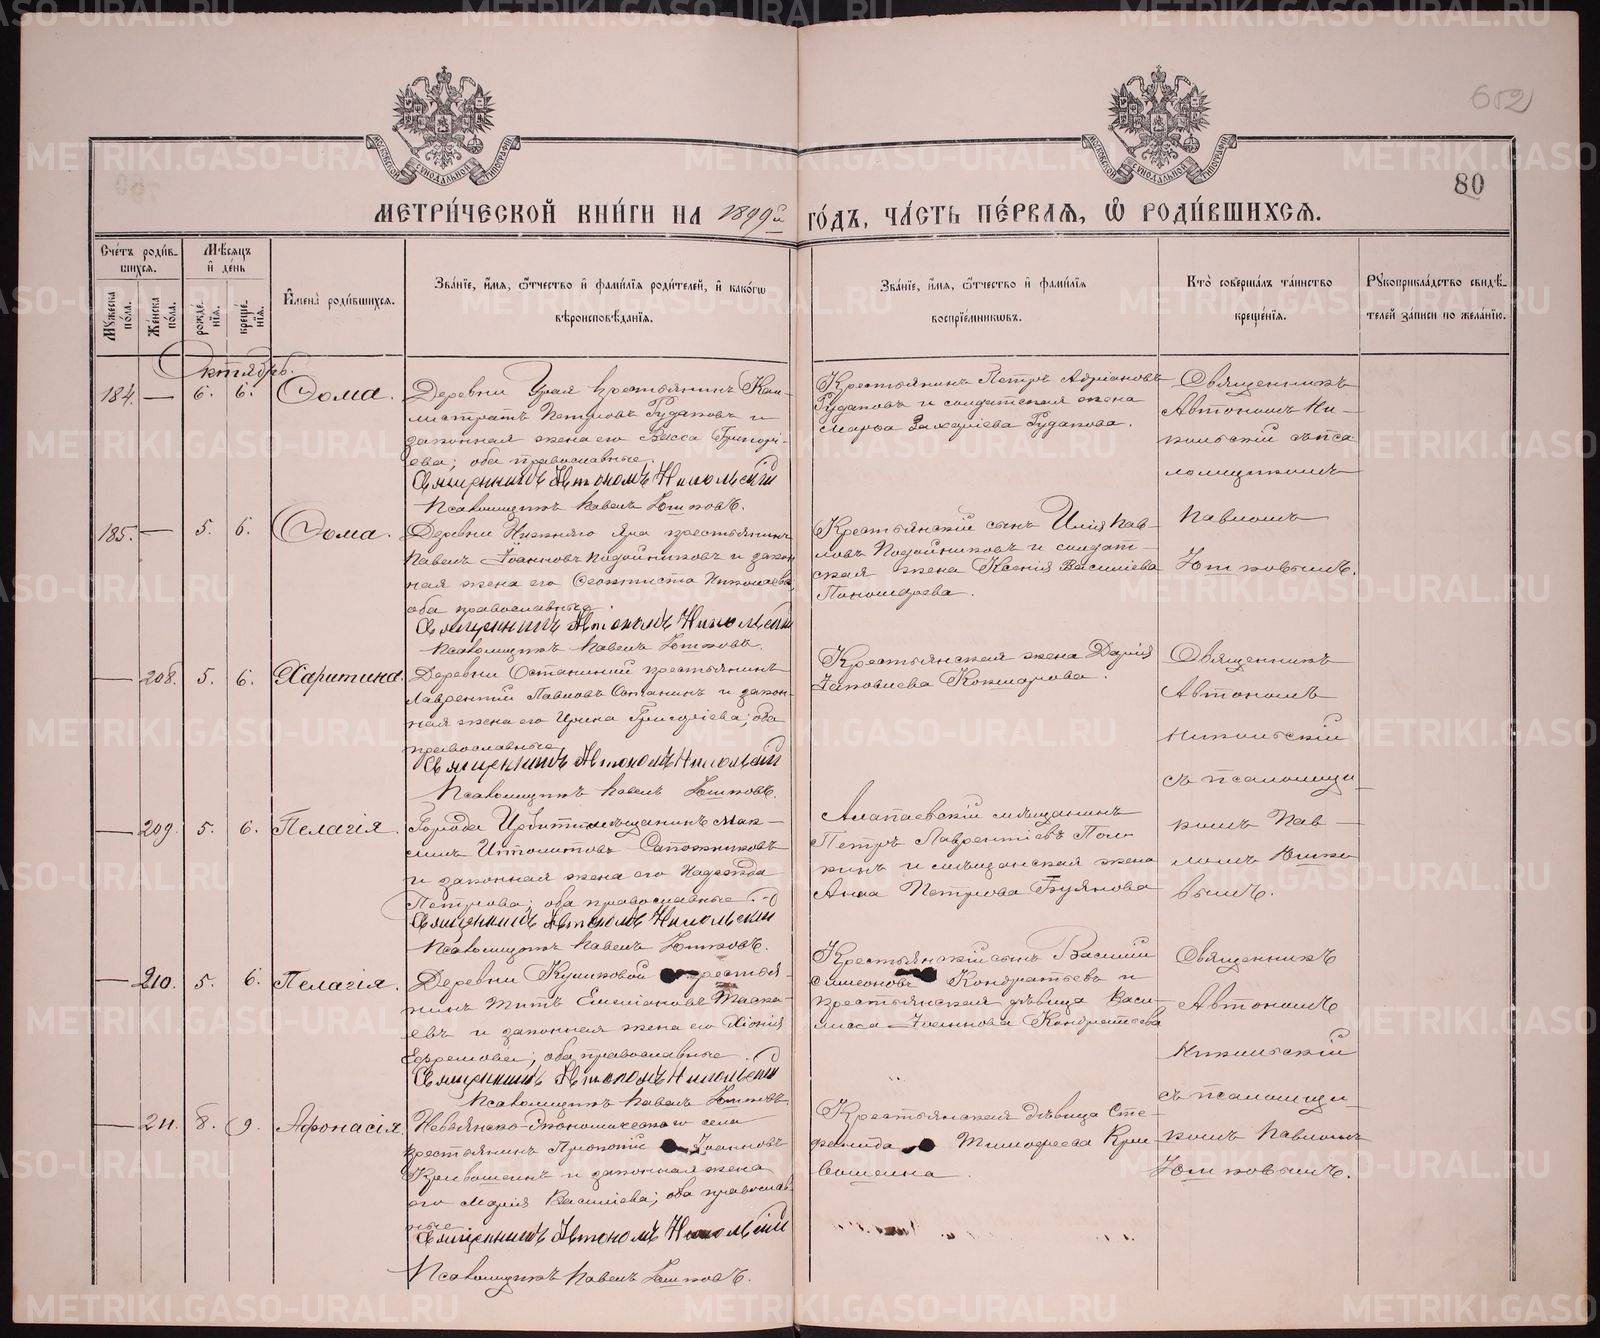 652
80
МОСКОВСКОЙ СѴНОДАЛЬНОЙ ТИПОГРАФІИ
МОСКОВСКОЙ СѴНОДАЛЬНОЙ ТИПОГРАФІИ
МЕТРИ́ЧЕСКОЙ КНИ́ГИ НА 1899й ГО́ДЪ, ЧА́СТЬ ПЕ́РВАЯ, Ѡ РОДИ́ВШИХСЯ.
Сче́тъ роди́в-
шихся.
Мꙋжеска по́ла.
Же́нска по́ла.
Мѣ́сяцъ
и де́нь
рожде́нїя.
креще́нїя.
Имена̀ роди́вшихся.
Зва́нїе, и́мя, ѻ҆́тчество и҆ фами́лїя роди́телей, и҆ како́гѡ
вѣроисповѣ́данїя.
Зва́нїе, и́мя, ѻ҆́тчество и҆ фами́лїя
воспрїе́мникѡвъ.
Кто̀ соверша́лъ та́инство
креще́нїя.
Рꙋкоприкла́дство свидѣ́-
телей за́писи по жела́нїю.
Октябрь.
184. — 6. 6. Ѳома.
Деревни Урая крестьянинъ Кал-
листратъ Петровъ Гудаковъ и
законная жена его Васса Григорі-
ева; оба православные.
Священникъ Автономъ Никольскій
Псаломщикъ Павелъ Юшковъ.
Крестьянинъ Петръ Адріановъ
Гудаковъ и солдатская жена
Марѳа Захаріева Гудакова.
Священникъ
Автономъ Ни-
кольскій съ пса
ломщикомъ
Павломъ
Юшковымъ.
185. — 5. 6. Ѳома.
Деревни Нижняго Яра крестьянинъ
Павелъ Іоанновъ Подойниковъ и закон
ная жена его Ѳеоктиста Николаева,
оба православные.
Священникъ Автономъ Никольскій
Псаломщикъ Павелъ Юшковъ.
Крестьянскій сынъ Илія Пав-
ловъ Подойниковъ и солдат-
ская жена Ксенія Василіева
Пономарева.
— 208. 5. 6. Харитина
Деревни Останиной крестьянинъ
Лаврентій Павловъ Останинъ и закон-
ная жена его Ирина Григоріева; оба
православные
Священникъ Автономъ Никольскій
Псаломщикъ Павелъ Юшковъ.
Крестьянская жена Дарія
Іаковлева Кокшарова.
Священникъ
Автономъ
Никольскій
съ псаломщи-
комъ Пав-
ломъ Юшко
вымъ.
— 209. 5. 6. Пелагія.
Города Ирбити мѣщанинъ Мак-
симъ Ипполитовъ Сапожниковъ
и законная жена его Надежда
Петрова; оба православные.
Священникъ Автономъ Никольскій
Псаломщикъ Павелъ Юшковъ.
Алапаевскій мѣщанинъ
Петръ Лаврентіевъ
и мѣщанская жена
Анна Петрова Буянова
— 210. 5. 6. Пелагія.
Деревни Куликовой крестья-
нинъ Титъ Емиліановъ Таска-
евъ и законная жена его Хіонія
Ефремова; оба православные.
Священникъ Автономъ Никольскій
Псаломщикъ Павелъ Юшковъ
Крестьянскій сынъ Василій
Симеоновъ Кондратьевъ и
крестьянская дѣвица Васи-
лисса Іоаннова Кондратьева
Священникъ
Автономъ
Никольскій
съ псаломщи-
комъ Павломъ
Юшковымъ.
— 211. 8. 9. Аѳонасія.
Невьянско-Экономическаго села
крестьянинъ Прокопій Іоанновъ
Кривошеинъ и законная жена
его Марія Василіева; оба православ-
ные
Священникъ Автономъ Никольскій
Псаломщикъ Павелъ Юшковъ.
Крестьянская дѣвица Сте-
фанида Тимофеева Кри
вошеина.
METRIKI.GASO-URAL.RU